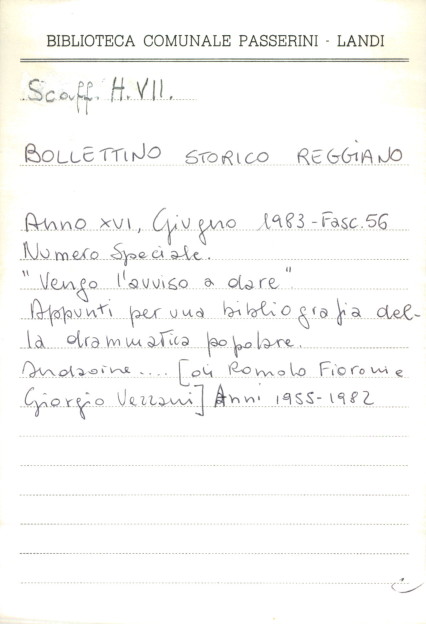 BIBLIOTECA COMUNALE PASSERINI - LANDI
Scaff. H.VII.
BOLLETTINO STORICO REGGIANO
Anno XVI, Giugno 1983 - Fasc. 56
Numero Speciale.
"Vengo l'avviso a dare".
Appunti per una bibliografia del-
la drammatica popolare.
.... [di Romolo Fioroni e
Giorgio Vezzani] Anni 1955-1982